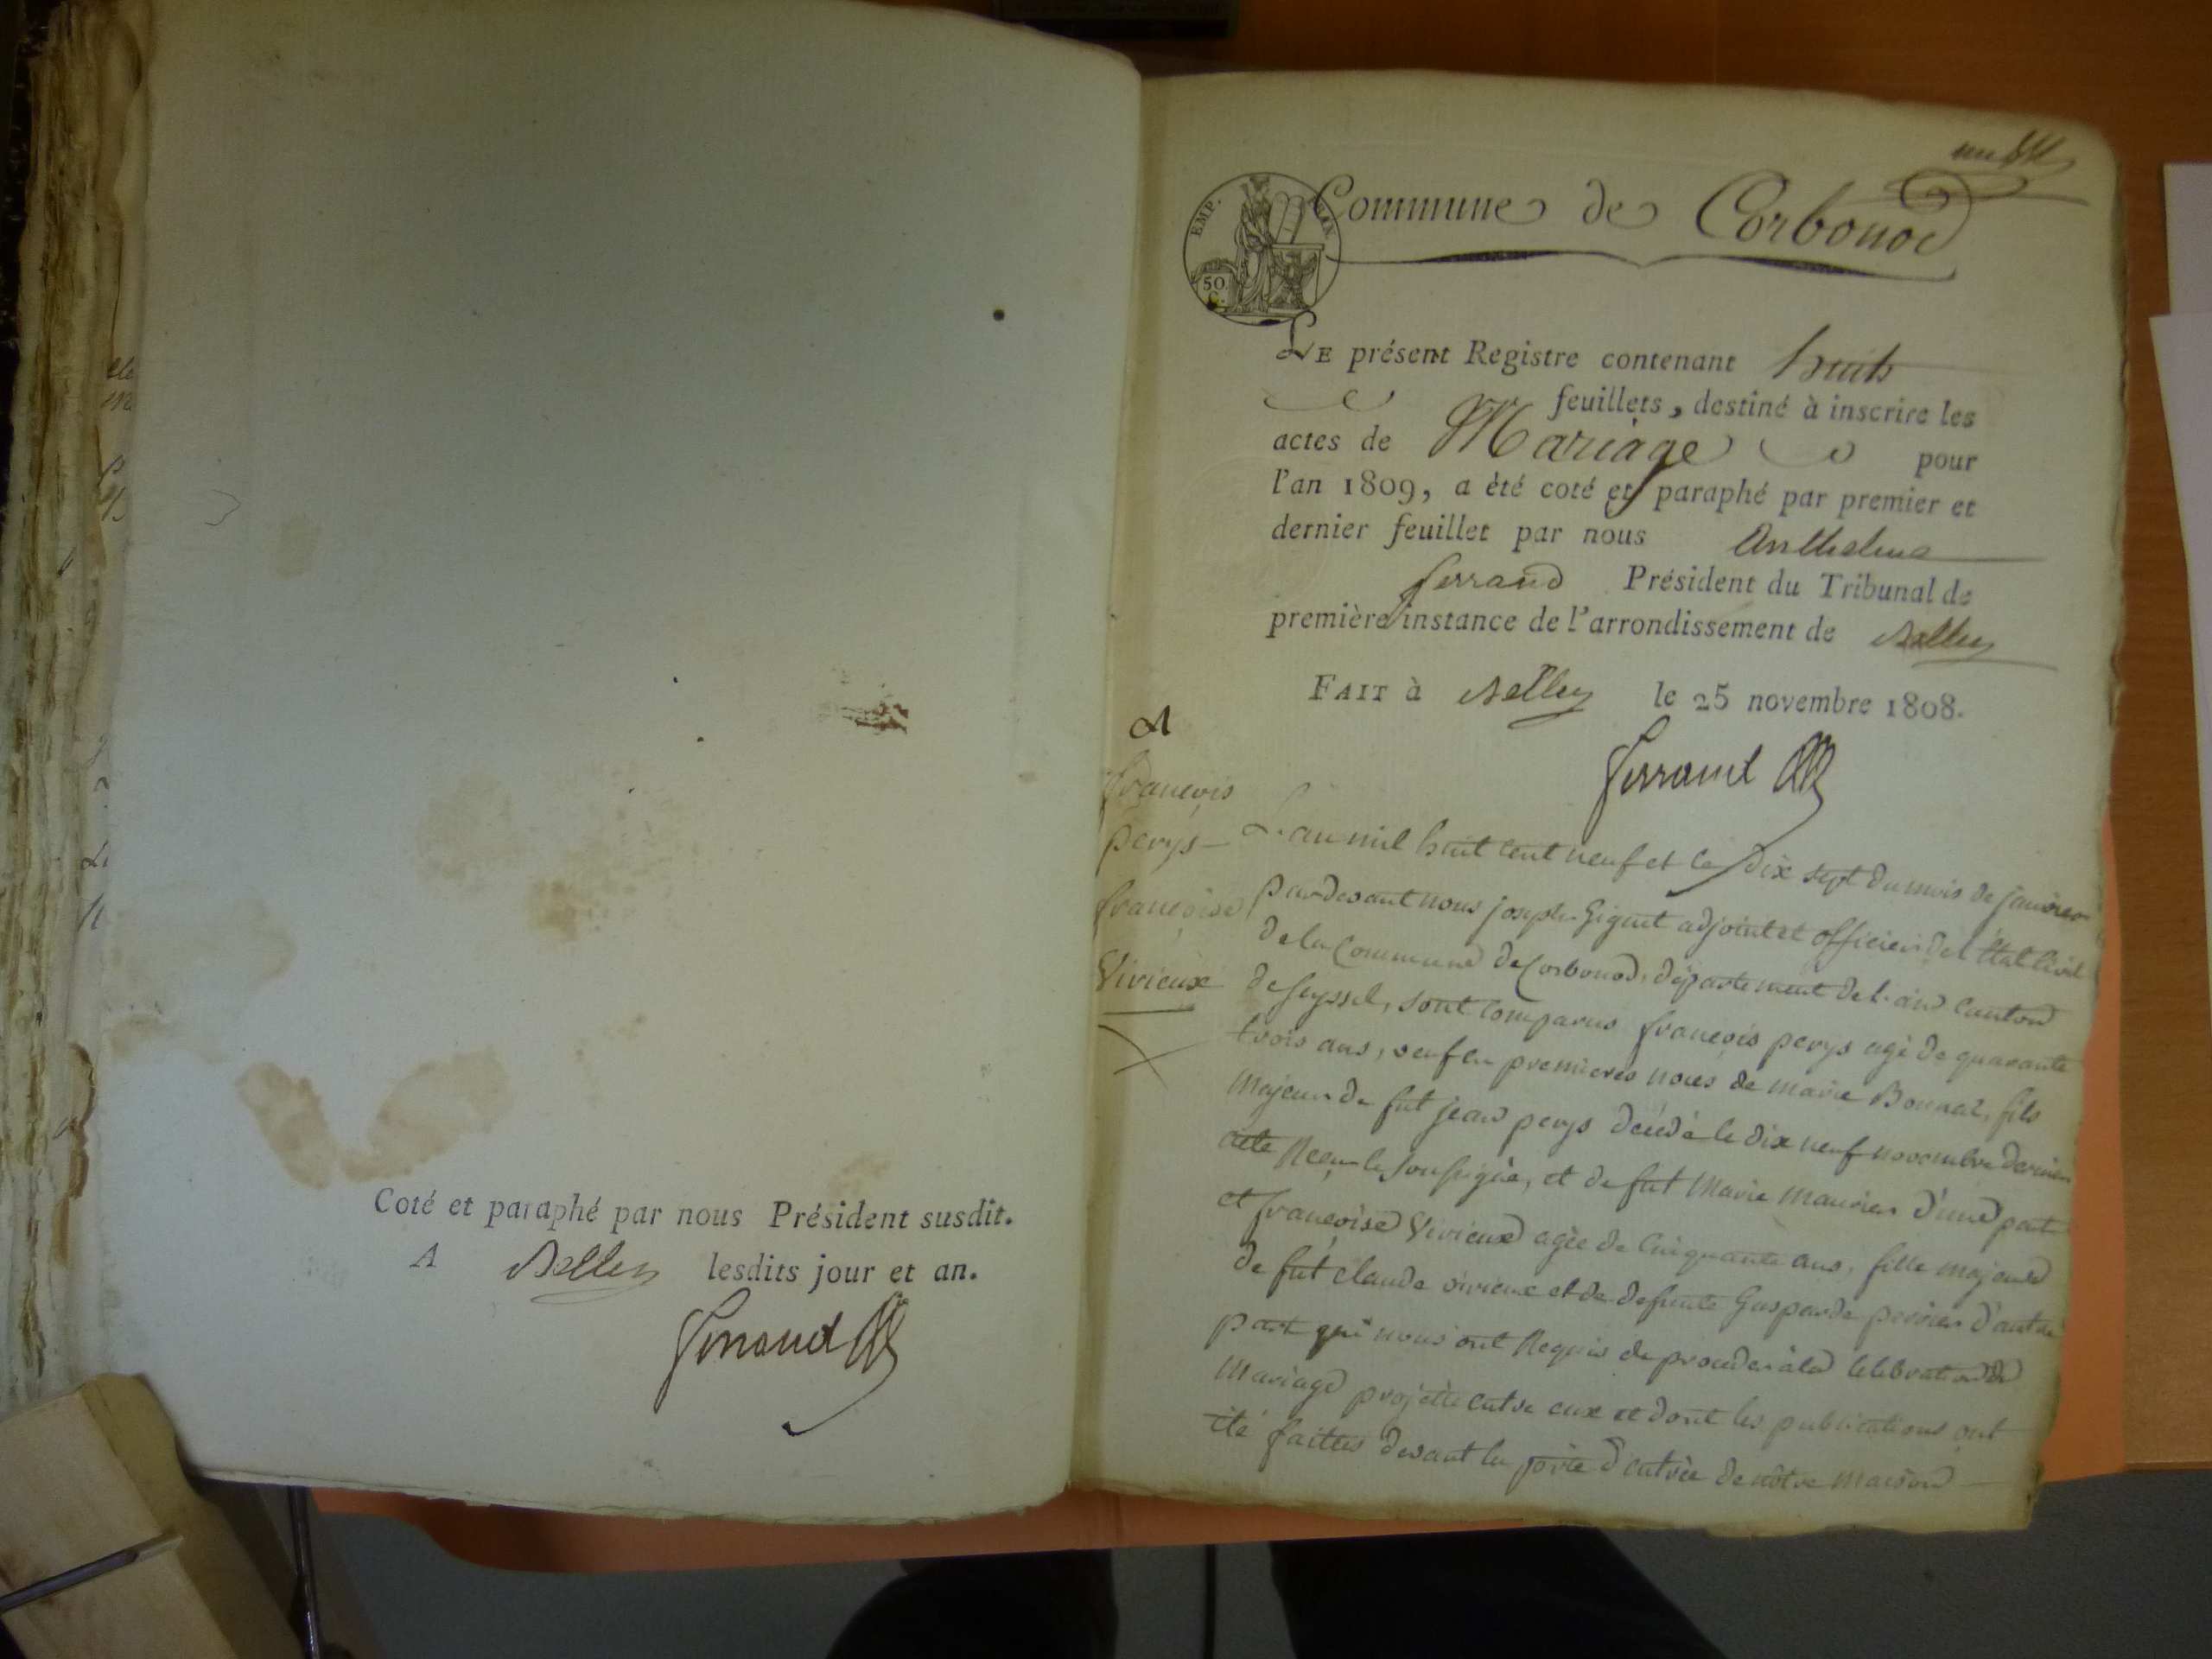 Coté et paraphé par nous Président susdit.
A Belley lesdits jour et an.
Ferrand
un
Commune de Corbonod
EMP. FRAN.
50
C.
LE présent Registre contenant huit
feuillets, destiné à inscrire les
actes de Mariage pour
l'an 1809, a été coté et paraphé par premier et
dernier feuillet par nous Anthelme
ferrand Président du Tribunal de
première instance de l'arrondissement de Belley
FAIT à Belley le 25 novembre 1808.
Ferrand
françois
perys
françoise
Vivieux
L'an mil huit cent neuf et le dix sept du mois de janvier
pardevant nous joseph Giguet adjoint et officier de l'État Civil
de la Commune de Corbonod, département de l'ain Canton
de seyssel, sont comparus françois perys agé de quarante
trois ans, veuf en premieres noces de marie Bonnaz, fils
Majeur de fut jean perys décédé le dix neuf novembre dernier
acte Reçu le soussigné, et de fut Marie Maurier d'une part
et françoise Vivieux agée de Cinquante ans, fille majeure
de fut claude vivieux et de defunte Gasparde perrier d'autre
part qui nous ont Requis de proceder à la Celebration du
Mariage projetté entre eux et dont les publications ont
été faittes devant la porte d'entrée de nôtre Maison